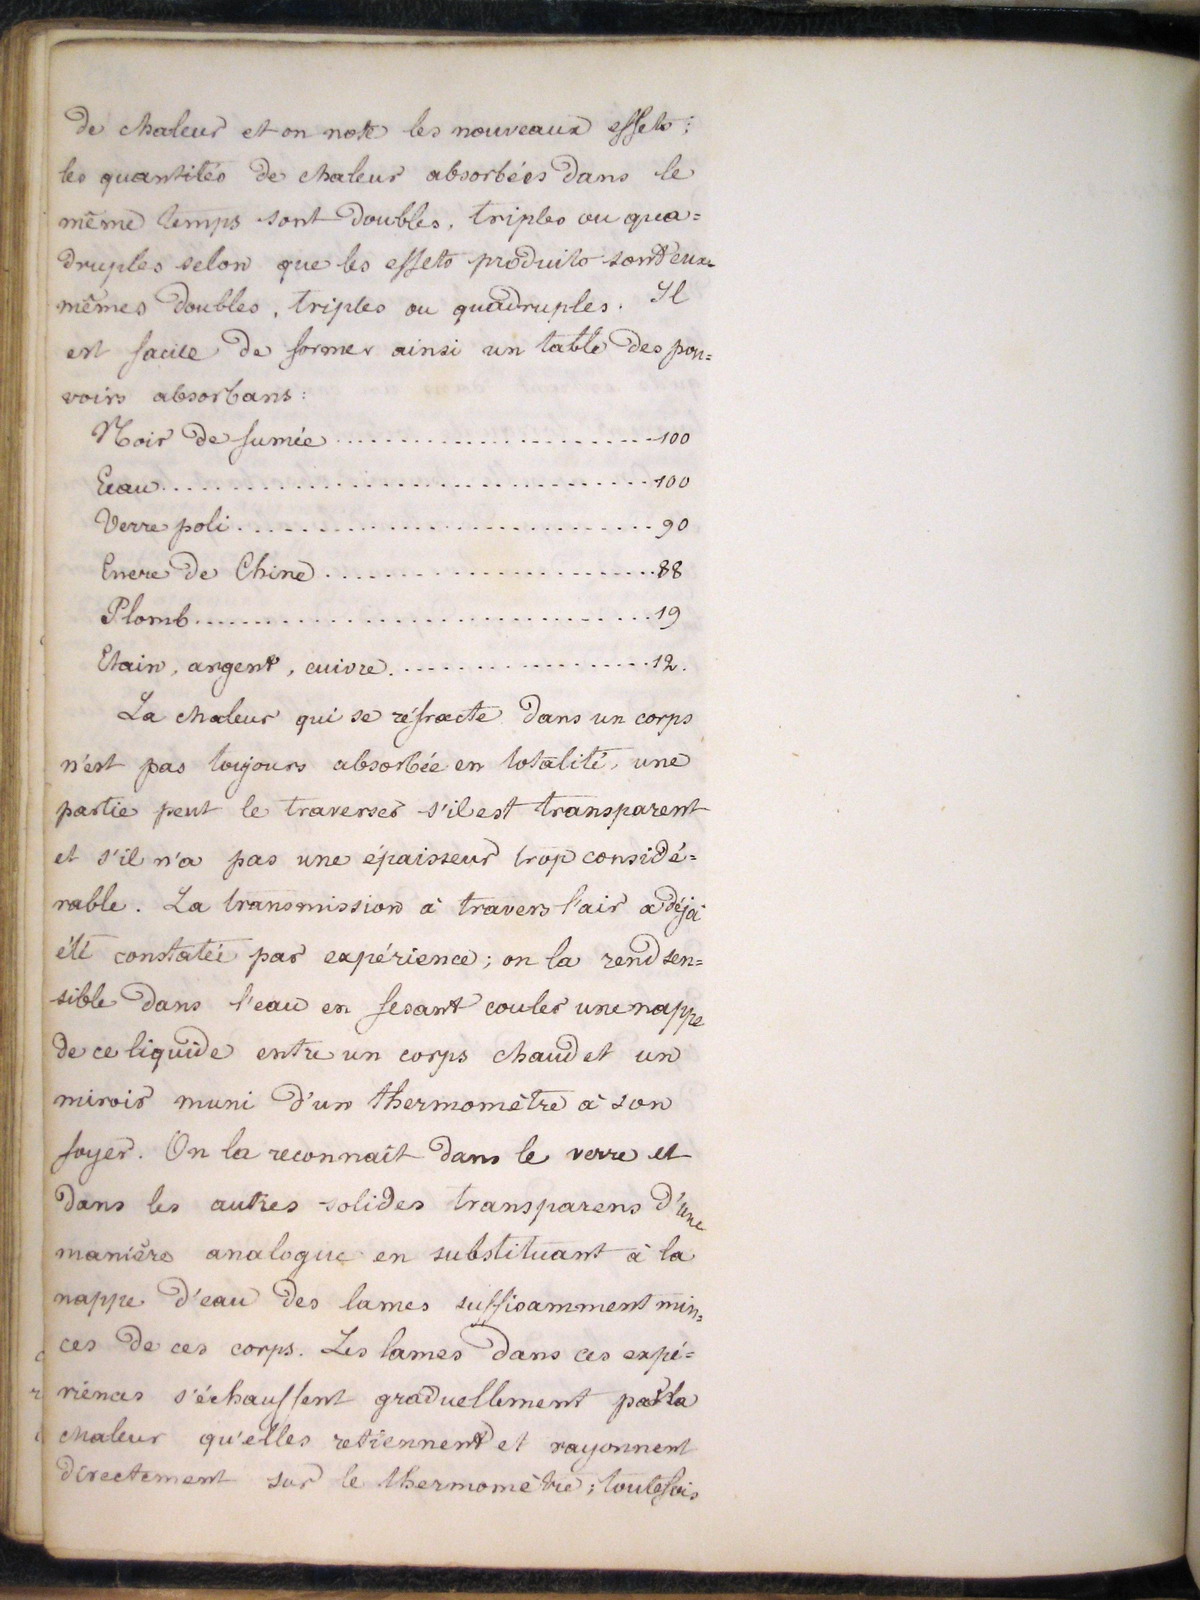 de chaleur et on note les nouveaux effets;
les quantités de chaleur absorbées dans le
même temps sont doubles, triples ou qua=
druples selon que les effets produits sont eux-
mêmes doubles, triples ou quadruples. Il
est facile de former ainsi un table des pou=
voirs absorbans:
Noir de fumée ........................ 100
Eau ........................ 100
Verre poli ........................ 90
Encre de Chine ........................ 88
Plomb ........................ 19
Etain, argent, cuivre ........................ 12.
La chaleur qui se réfracte dans un corps
n'est pas toujours absorbée en totalité, une
partie peut le traverser s'il est transparent
et s'il n'a pas une épaisseur trop considé=
rable. La transmission à travers l'air a déjà
été constatée par expérience; on la rend sen=
sible dans l'eau en fesant couler une nappe
de ce liquide entre un corps chaud et un
miroir muni d'un thermomètre à son
foyer. On la reconnaît dans le verre et
dans les autres solides transparens d'une
manière analogue en substituant à la
nappe d'eau des lames suffisamment min=
ces de ces corps. Les lames dans ces expé=
riences s'échauffent graduellement par la
chaleur qu'elles retiennent et rayonnent
directement sur le thermomètre; toutefois